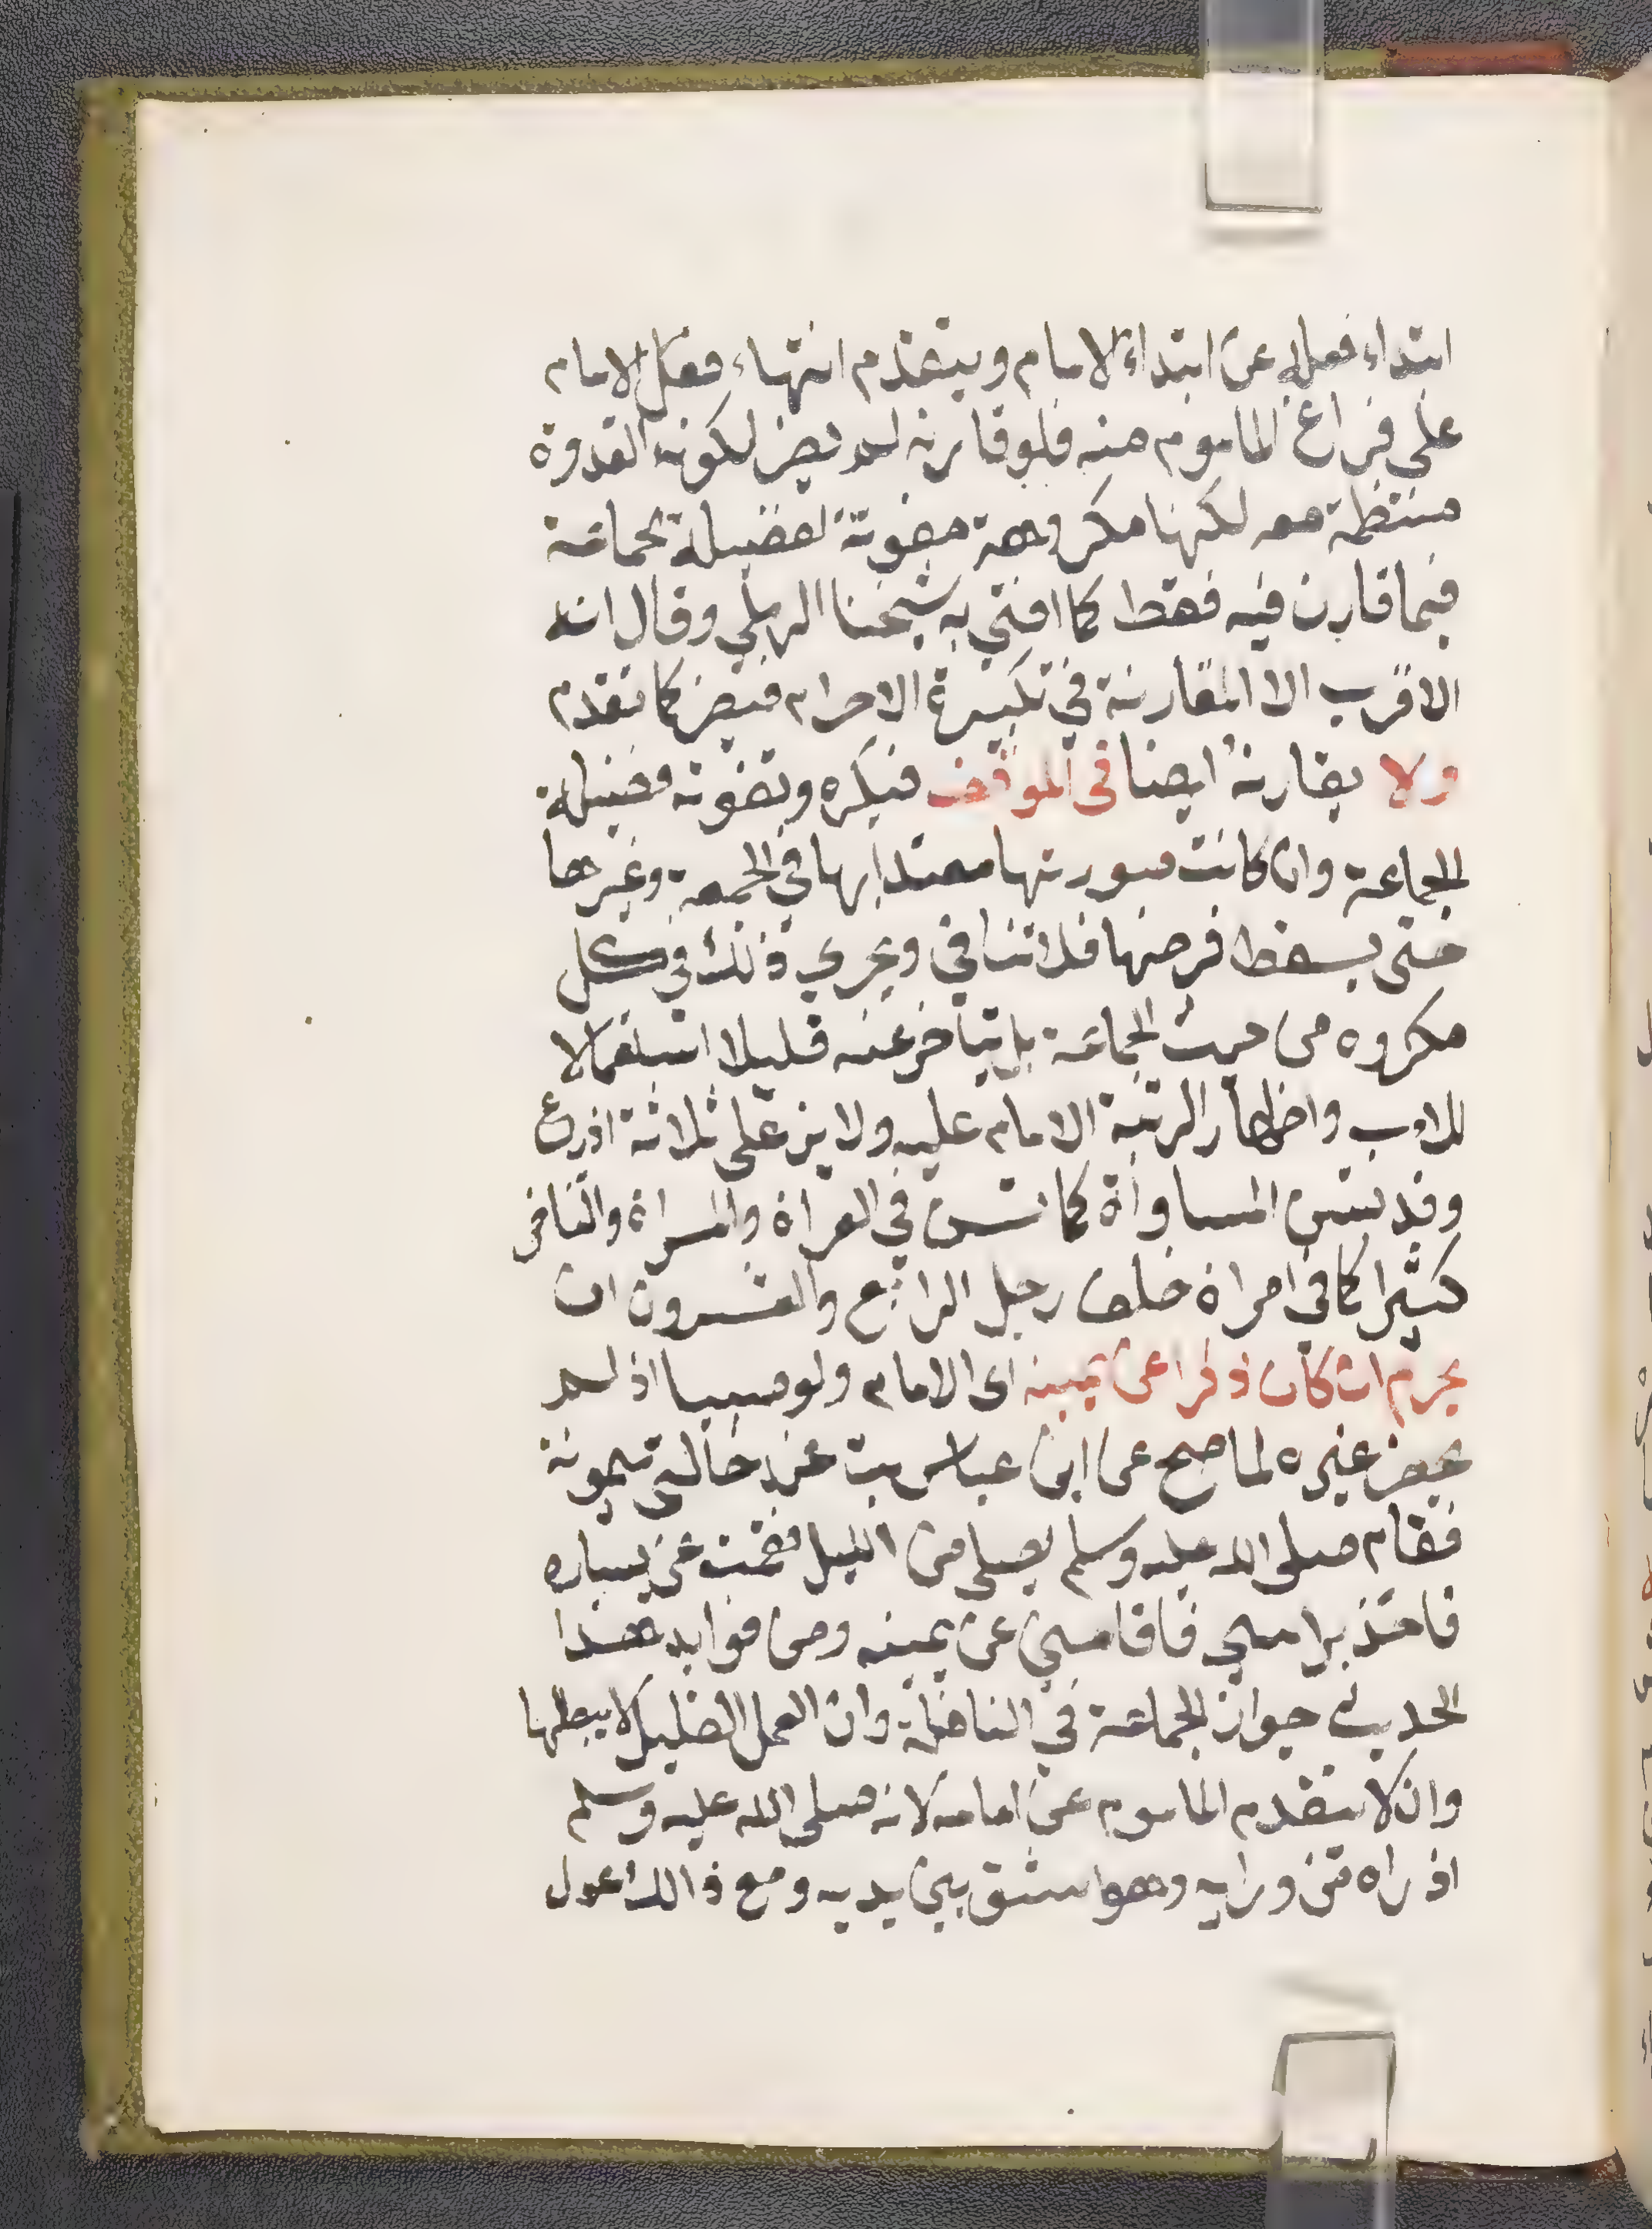 ابتداء فعله عن ابتداء الامام ويتقدم انتهاء فعل الامام
على فراغ الماموم منه فلو قارنه لم يضر لكونه القدوة
منتظمة معه لكنها مكروهة مفوتة لفضيلة الجماعة
فيما قارن فيه فقط كما افتي به شيخنا الرملي وقال انه
الاقرب الا المقارنة في تكبيرة الاحرام فيضر كما تقدم
ولا يقارنه ايضا في الموقف فيكره وتفوته فضيلة
الجماعة وان كانت صورتها معتدا بها في الجمعة وغيرها
حتى يسقط فرضها فلا تنافي ويجري ذلك في كل
مكروه من حيث الجماعة بل يتاخر عنه قليلا استعمالا
للادب واظهار الرتبة الامام عليه ولا يزد على ثلاثة اذرع
وقد تسن المساواة كما تسن في العراة والمراة والتاخر
كثيرا كما في امراة خلف رجل الرابع والعشرون ان
يحرم ان كان ذكرا عن يمينه اى الامام ولو صبيا اذ لم
يحضر غيره لما صح عن ابن عباس بت عند خالتي ميمونة
فقام صلى الله عليه وسلم يصلي من الليل فقمت عن يساره
فاخذ براسي فاقامني عن يمينه ومن فوايد هذا
الحديث جواز الجماعة في النافلة وان العمل القليل لا يبطلها
وان لا يتقدم الماموم عن امامه لانه صلى الله عليه وسلم
اذ راه من ورايه وهو بين يديه ومع ذالك